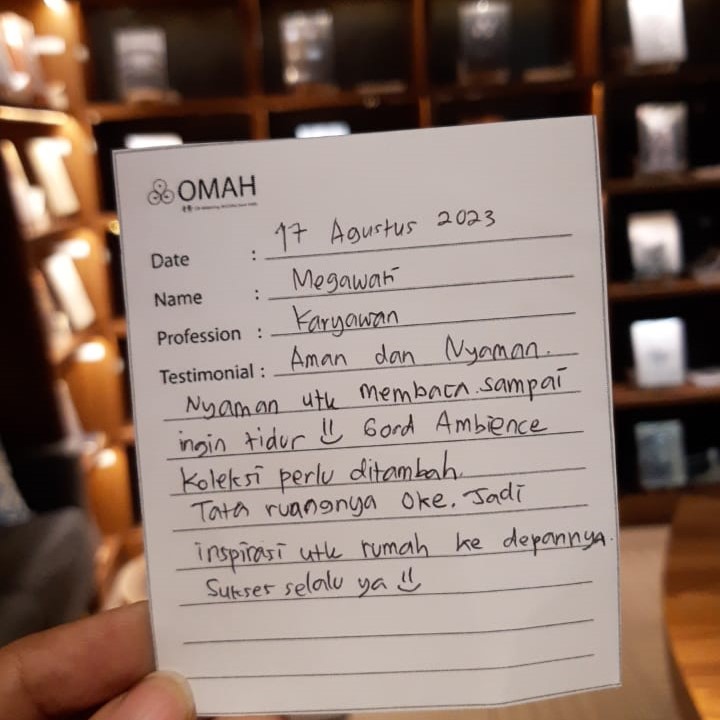 OMAH
Date : 17 Agustus 2023
Name : Megawati
Profession : Karyawan
Testimonial : Aman dan Nyaman.
Nyaman utk membaca sampai
ingin tidur !! Good Ambience
Koleksi perlu ditambah.
Tata ruangnya Oke. Jadi
inspirasi utk rumah ke depannya.
Sukses selalu ya !!